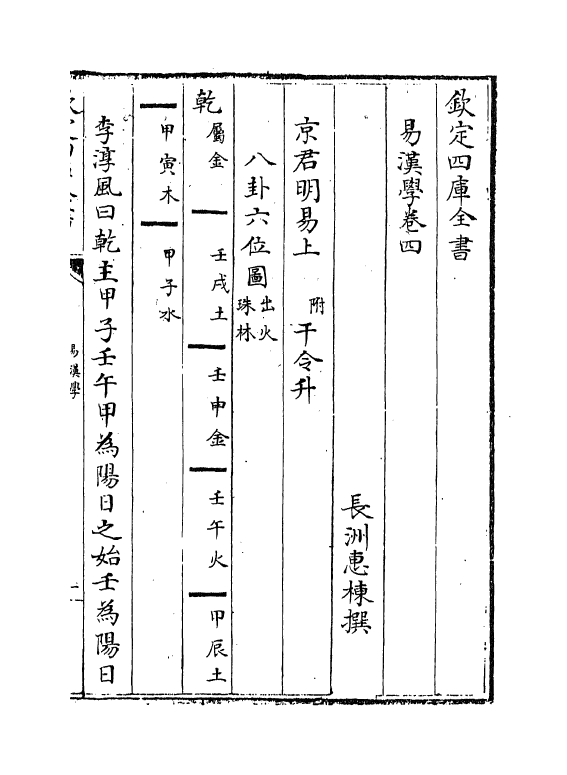 欽定四庫全書
易漢學卷四
長洲惠棟撰
京君明易上 附干令升
八卦六位圖 出火珠林
乾 屬金 壬戌土 壬申金 壬午火 甲辰土
甲寅木 甲子水
李淳風曰乾主甲子壬午甲為陽日之始壬為陽日
易漢學